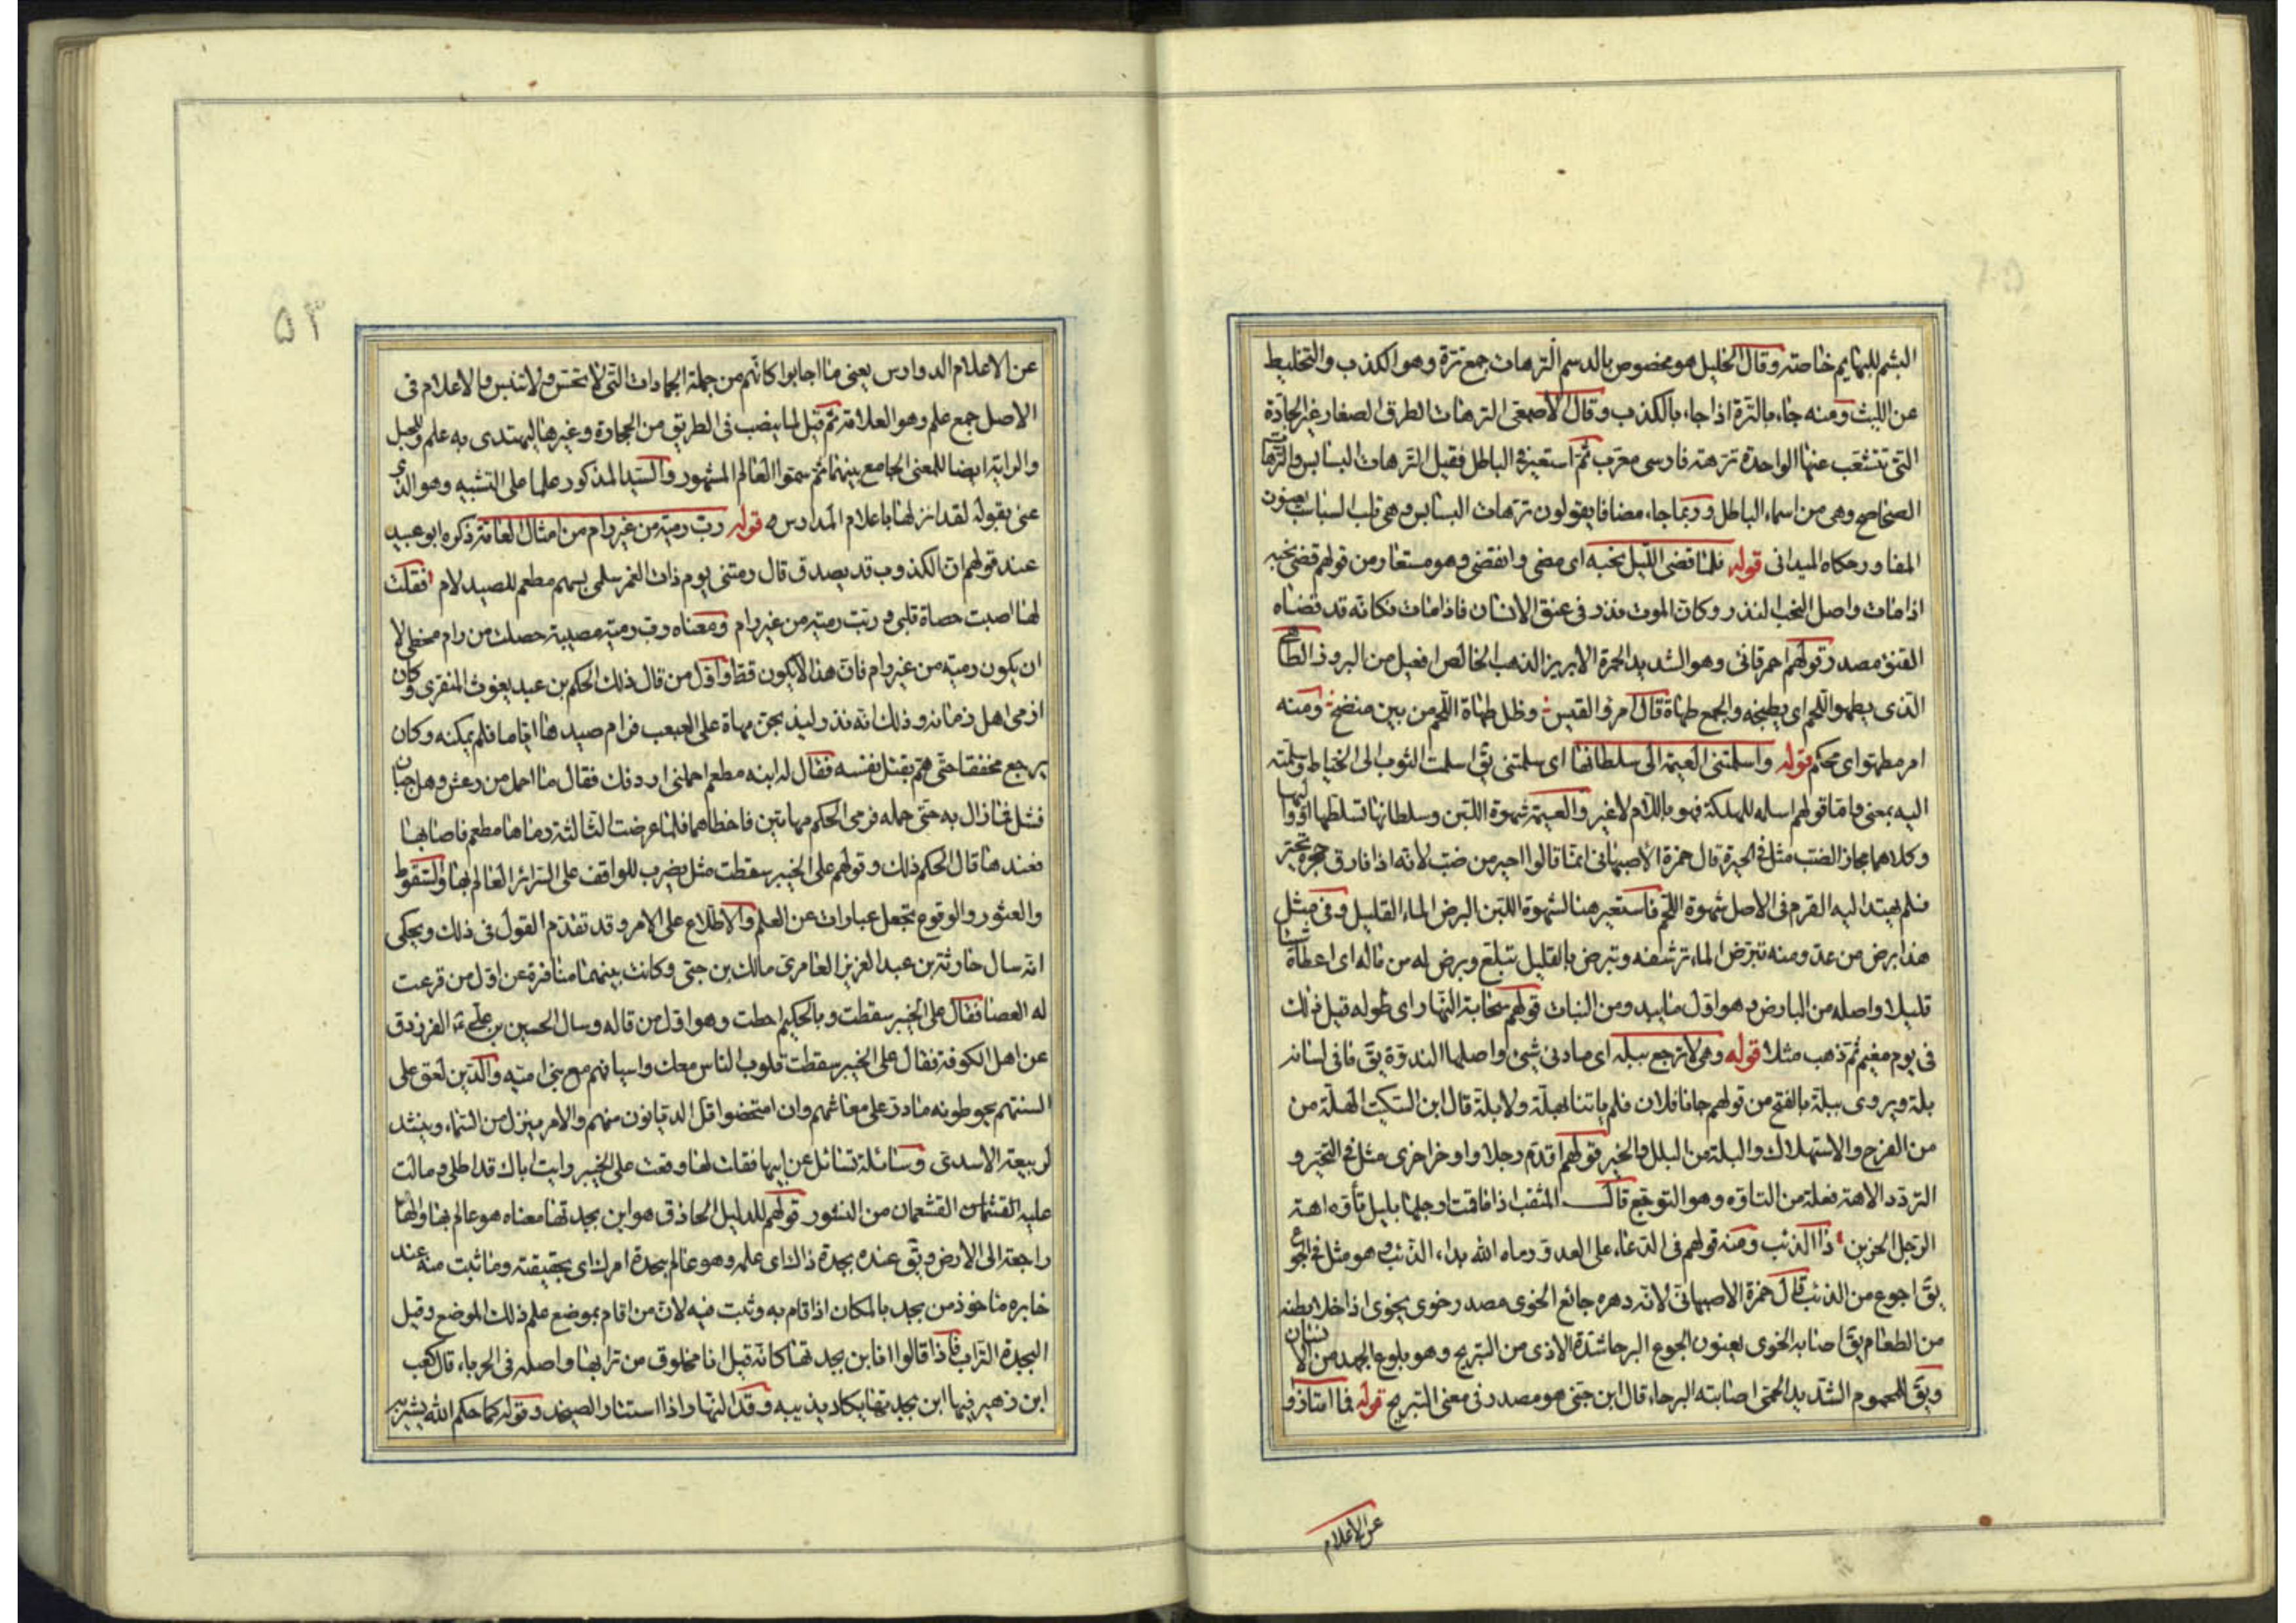 البشم للبهايم خاصته وقال الخليل هو مخصوص بالدسم الترهات جمع ترة وهو الكذب والتخليط
عن الليث ومنه جاء بالترة اذا جاء بالكذب وقال الاصمعى الترهات الطرق الصغار غير الجادة
التى تتشعب عنها الواحدة ترهته فارسى معرب ثم استعير فى الباطل فقيل الترهات البسابس والترهات
الصحاصح وهى من اسماء الباطل وربما جاء مضافا يقولون ترهات البسابس وهى قلب السباسب يعنون
المفاوز حكاه الميدانى قوله فلما قضى الليل نحبه اى مضى وانقضى وهو مستعار من قولهم قضى نحبه
اذا مات واصل النحب النذر وكان الموت نذر فى عنق الانسان فاذا مات فكانه قد قضاه
القنؤ مصدر قولهم احمر قانى وهو الشديد الحمرة الابريز الذهب الخالص افعيل من البروز الطاهى
الذى يطهو اللحم اى يطبخه والجمع طهاة قال امرؤ القيس وظل طهاة اللحم من بين منضج ومنه
امر مطهو اى محكم قوله واسلمتنى العيمة الى سلطانها اى سلمتنى يق اسلمت الثوب الى الخياط وسلمته
اليه بمعنى واما قولهم اسلمه للهلكة فهو باللام لاغير والعيمة شهوة اللبن وسلطانها تسلطها او واليها
وكلاهما مجاز الضب مثل فى الحيرة قال حمزة الاصبهانى انما قالوا احير من ضب لانه اذا فارق جحره تحير
فلم يهتد اليه القرم فى الاصل شهوة اللحم فاستعير هنا لشهوة اللبن البرض الماء القليل وفى مثل
هذا برض من عد ومنه تبرض الماء ترشفه وتبرض بالقليل تبلغ وبرض له من ماله اى اعطاه شيئا
قليلا واصله من البارض وهو اول ما يبد ومن النبات قولهم سحابة النهار اى طوله قيل ذلك
فى يوم مغيم ثم ذهب مثلا قوله وهى لا ترجع ببلة اى ما دنى شىء واصلها الندوة يق فافى لسانه
بلة ويروى ببلة بالفتح من قولهم جانا فلان فلم ياتنا بهلة ولا بلة قال ابن السكيت الهلة من
من الفرح والاستهلال والبلة من البلل والخير قولهم اقدم رجلا واوخر اخرى مثل فى التحير و
التردد الاهة فعلة من التاوه وهو التوجع قال المثقب اذا ما قمت ارحلها بليل تأوه اهة
الرجل الحزين ذا الذئب ومنه قولهم فى الدعاء على العدو رماه الله بداء الذئب وهو مثل فى الجوع
يق اجوع من الذئب قال حمزة الاصبهانى لانه دهره جائع الخوى مصدر خوى يخوى اذا خلا بطنه
من الطعام يق اصابه الخوى يعنون الجوع البرحا شدة الاذى من التبريح وهو بلوغ الجهد من الانسان
ويق للمحموم الشديد الحمى اصابته البرحاء قال ابن جنى هو مصدر فى معنى التبريح قوله فاامتاز و
عن الاعلام
٥٣
عن الاعلام الدوارس يعنى ما اجابوا كانهم من جملة الجمادات التى لا تحس ولا تنبس والاعلام فى
الاصل جمع علم وهو العلامة ثم قيل لما ينصب فى الطريق من الحجارة وغيرها ليهتدى به علم وللجبل
والراية ايضا للمعنى الجامع بينهما ثم سموا العالم المشهور والسيد المذكور علما على التشبيه وهو الذى
عنى بقوله لقد انزلها باعلام المدارس قوله رب رمية من غير رام من امثال العامة ذكره ابو عبيد
عند قولهم ان الكذوب قد يصدق قال رمتنى يوم ذات الغمر سلمى بسهم مطعم للصيد لام فقلت
لها اصبت حصاة قلبى ورب رمية من غير رام ومعناه رب رمية مصيبة حصلت من رام مخطى لا
ان يكون رمية من غير رام فان هذا لا يكون قط واول من قال ذلك الحكم بن عبد يغوث المنقرى وكان
ارمى اهل زمانه وذلك انه نذر ليذبحن مهاة على الغبغب فرام صيدها اياما فلم يمكنه وكان
يرجع مخفقا حتى هم بقتل نفسه فقال له ابنه مطعم احملنى ارفدك فقال ما احمل من رعش وهل جبان
فشل فما زال به حتى حمله فرمى الحكم مهاتين فاخطاهما فلما عرضت الثالثة رماها مطعم فاصابها
فعندها قال الحكم ذلك وقولهم على الخبير سقطت مثل يضرب للواقف على السرائر العالم بها والسقوط
والعثور والوقوع تجعل عبارات عن العلم والاطلاع على الامر وقد تقدم القول فى ذلك ويحكى
انه سال حارثة بن عبد العزيز العامرى مالك بن جنى وكانت بينهما منافرة عن اول من قرعت
له العصا فقال على الخبير سقطت وبالحكيم احطت وهو اول من قاله وسال الحسين بن على الفرزدق
عن اهل الكوفة فقال على الخبير سقطت قلوب الناس معك واسيافهم مع بنى امية والدين لعق على
السنتهم يحوطونه مادرت على معائشهم وان امتحضوا قل الديانون منهم والامر ينزل من السماء وينشد
لربيعة الاسدى وسائلة تسائل عن ابيها فقلت لها وقعت على الخبير رايت اباك قد اطلى ومالت
عليه القشعمان القشعمان من النسور قولهم للدليل الحاذق هو ابن بجدتها معناه هو عالم بها والهاء
راجعة الى الارض ويق عنده بجدة ذاك اى علمه وهو عالم ببجدة امرك اى بحقيقته وما ثبت منه عند
خابره ماخوذ من بجد بالمكان اذا قام به وثبت فيه لان من اقام بموضع علم ذلك الموضع وقيل
البجدة التراب فاذا قالوا انا ابن بجدتها كانه قيل انا مخلوق من ترابها واصله فى الحرباء قال كعب
ابن زهير فيها ابن بجدتها يكاد يذيبه وقد النهار اذا استنار الصيخد وقوله كما حكم الله